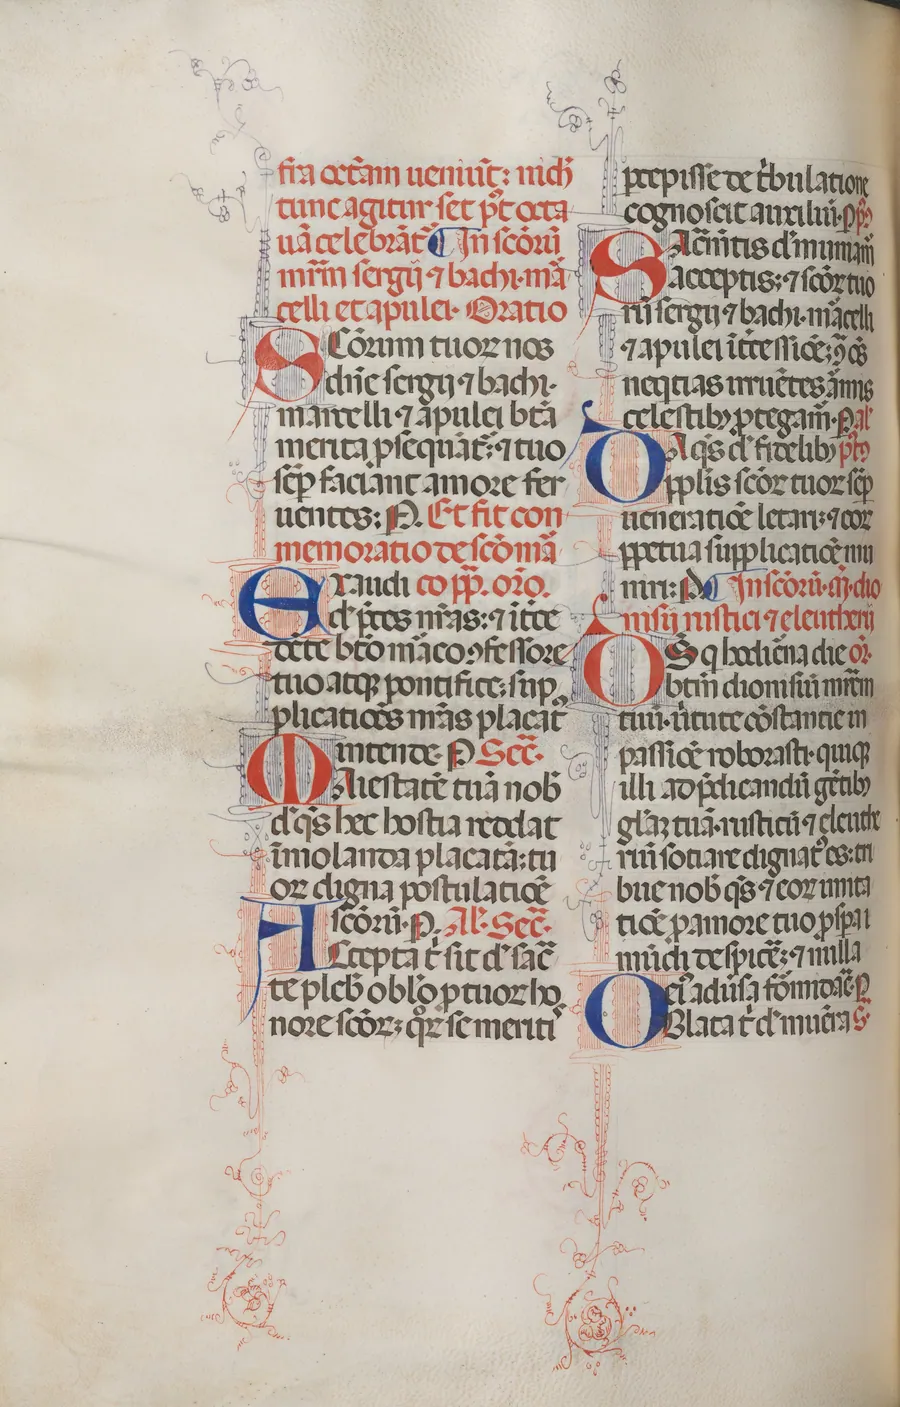 fra octam ueniut: nich
tunc agitur set pt octa
ua celebrat In scoru
mrm sergii ⁊ bachi · ma
celli et apulei · Oratio
SCorum tuor nos
dne sergii ⁊ bachi ·
marcelli ⁊ apulei bta
merita psequat: ⁊ tuo
sep faciant amore fer
uentes: P. Et fit con
memoratio de sco ma
Exaudi co pp. oro.
ds pces nras: ⁊ itce
dete bto maco ꝯfessore
tuo atqꝫ pontifice: sup
plicatioes nras placat
intende P Sec.
Maiestate tua nob
ds qs hec hostia reddat
imolanda placata: tu
or digna postulatioe
scoru. P. Al. Sec.
Accepta t sit ds sac
te pleb oblo p tuor ho
nore scor: qr se meriti
pcepisse de tbulatione
cognoscit auxiliu. Pp
SAcmtis ds muniam
acceptis: ⁊ scor tuo
ru sergii ⁊ bachi · macelli
⁊ apulei itcessioe: ꝯ os
neqtias irruetes armis
celestibꝫ ptegam. P al
DA qs ds fidelibꝫ pco
pplis scor tuor sep
ueneratioe letari: ⁊ eor
ppetua supplicatioe mu
niri: P. In scoru · m · dio
nisii rustici ⁊ eleutherii
DS q hodierna die or.
btm dionisiu mrem
tuu. uitute costantie in
passioe roborasti · quiqꝫ
illi ad pdicandu getibꝫ
glaz tua. rusticu ⁊ eleuthe
riu sociare dignat es: tri
bue nob qs ⁊ eor imita
tioe p amore tuo pspa
mudi despice: ⁊ nulla
ei adusa formidae. P
OBlata t ds muera S